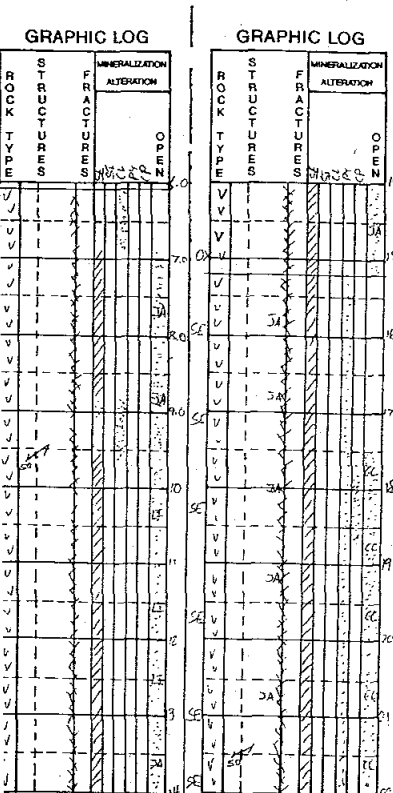 GRAPHIC LOG
ROCK TYPE
STRUCTURES
FRACTURES
MINERALIZATION
ALTERATION
OPEN
6.0
7.0
JA
8.0
JA
9.0
50
10
LI
11
LI
12
LI
13
JA
14
OX
SE
SE
SE
SE
SE
SE
GRAPHIC LOG
ROCK TYPE
STRUCTURES
FRACTURES
MINERALIZATION
ALTERATION
OPEN
JA
JA
16
JA
17
CC
JA
18
CC
19
JA
CC
20
JA
CC
21
50
CC